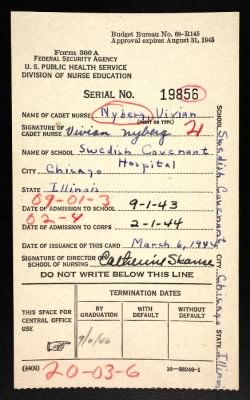 Budget Bureau No. 68-R145
Approval expires August 31, 1945
Form 300 A
FEDERAL SECURITY AGENCY
U. S. PUBLIC HEALTH SERVICE
DIVISION OF NURSE EDUCATION
SERIAL No. 19856
NAME OF CADET NURSE Nyberg, Vivian
(PRINT OR TYPE)
SIGNATURE OF CADET NURSE Vivian Nyberg 21
NAME OF SCHOOL Swedish Covenant Hospital
CITY Chicago
STATE Illinois
09-01-3
DATE OF ADMISSION TO SCHOOL 9-1-43
02-4
DATE OF ADMISSION TO CORPS 2-1-44
DATE OF ISSUANCE OF THIS CARD March 6, 1944
SIGNATURE OF DIRECTOR SCHOOL OF NURSING Catherine
DO NOT WRITE BELOW THIS LINE
THIS SPACE FOR CENTRAL OFFICE USE
TERMINATION DATES
BY GRADUATION
WITH DEFAULT
WITHOUT DEFAULT
9/6/46
(4409)
20-03-6
16-38249-1
SCHOOL Swedish Covenant CITY Chicago STATE Illinois